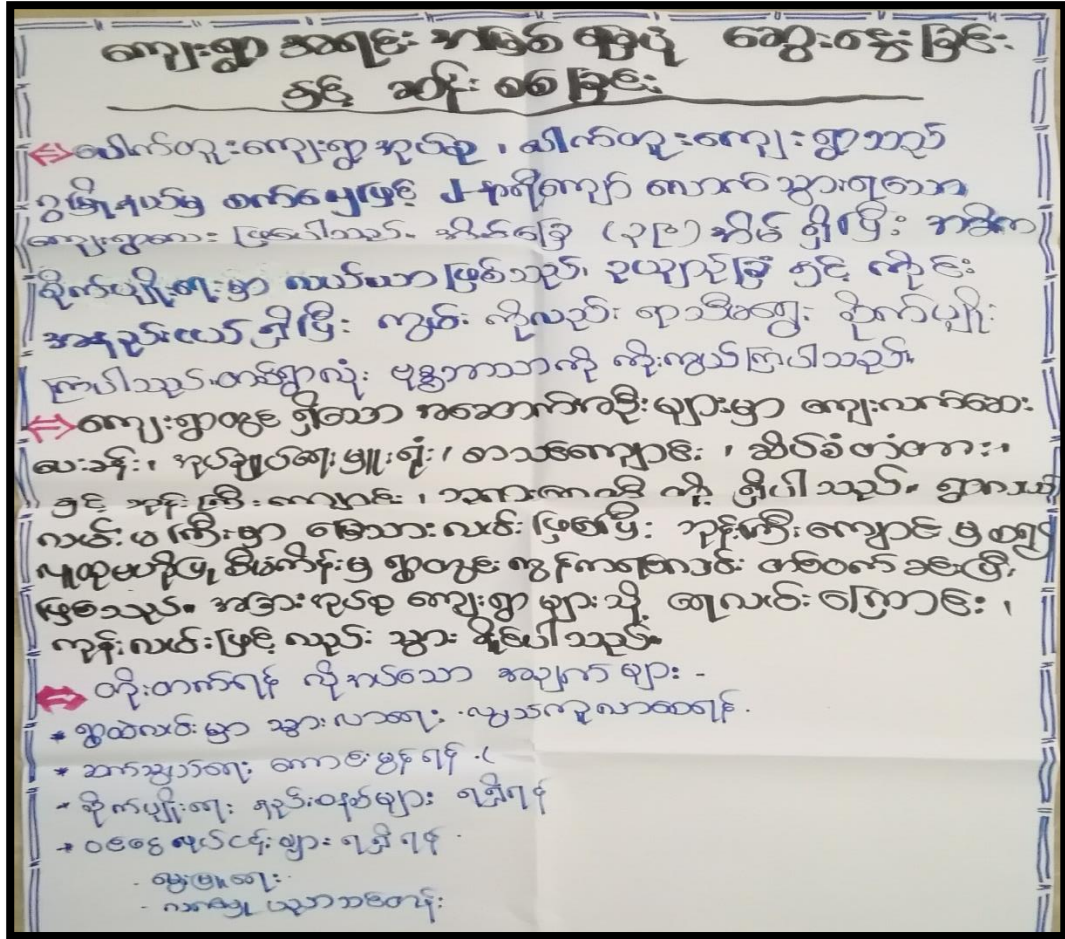 ကျေးရွာ အရင်း အမြစ် ရရှိပုံ ဆွေးနွေးခြင်း
နှင့် ဆန်းစစ်ခြင်း
ပေါက်တူးကျေးရွာအုပ်စု၊ ပေါက်တူးကျေးရွာသည်
မြို့နယ်မှ စက်လှေဖြင့် ၂ နာရီကျော် လောက် သွားရသော
ကျေးရွာလေး ဖြစ်ပါသည်။ အိမ်ခြေ အိမ် ရှိပြီး အဓိက
စိုက်ပျိုးရေးမှာ လယ်ယာ ဖြစ်သည်၊ ဥယျာဉ်ခြံ နှင့် ကိုင်း
အနည်းငယ် ရှိပြီး ကျွမ်း ကိုလည်း ရာသီမရွေး စိုက်ပျိုး
ကြပါသည်။ တစ်ရွာလုံး ဗုဒ္ဓဘာသာကို ကိုးကွယ်ကြပါသည်။
ကျေးရွာတွင် ရှိသော အဆောက်အဦး များမှာ ကျေးလက်ဆေး
ပေးခန်း၊ အုပ်ချုပ်ရေးမှူးရုံး၊ စာသင်ကျောင်း၊ ဆိပ်ခံတံတား၊
နှင့် ဘုန်းကြီးကျောင်း၊ ဘုရား တို့ ရှိပါသည်။ ရွာလယ်
လမ်းမကြီးမှာ မြေသားလမ်း ဖြစ်ပြီး ဘုန်းကြီးကျောင်း မှ
လူထုဗဟိုပြု စီမံကိန်းမှ ရွာတွင်း ကွန်ကရစ်လမ်း တစ်ဝက် ခင်းပြီး
ဖြစ်သည်။ အခြားအုပ်စု ကျေးရွာ များသို့ ရေလမ်းကြောင်း၊
ကုန်းလမ်းဖြင့် လည်း သွား နိုင်ပါသည်။
တိုးတက်ရန် လိုအပ်သော အချက် များ -
* ရွာထဲလမ်းမှာ သွားလာရေး လွယ်ကူလာစေရန်.
* ဆက်သွယ်ရေး ကောင်းမွန်ရန်.
* စိုက်ပျိုးရေး နည်းစနစ်များ ရရှိရန်
* ဝင်ငွေ လုပ်ငန်းများ ရရှိရန်.
- မွေးမြူရေး.
- လက်မှု ပညာသင်တန်း